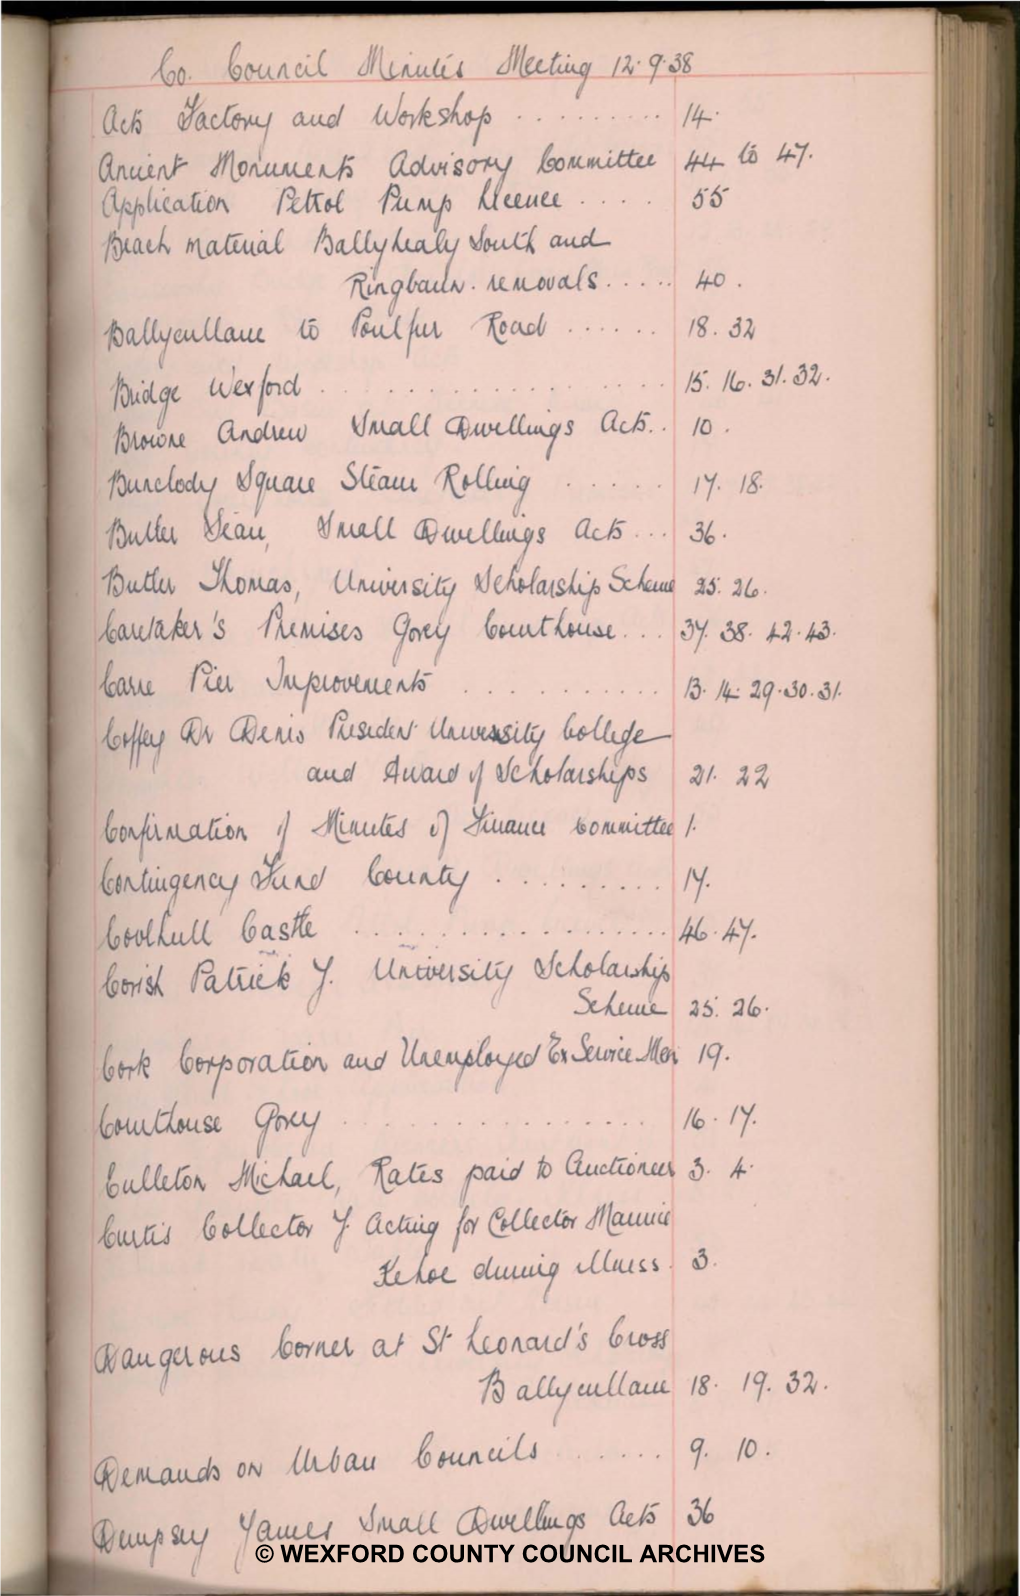 Co. Council Minutes Meeting 12.9.38
Acts Factory and Workshop ......... 14.
Ancient Monuments Advisory Committee 44 to 47.
Application Petrol Pump Licence .... 55
Beach material Ballyhealy South and
Ringbaun. removals ..... 40.
Ballycullane to Poulfur Road ...... 18. 32
Bridge Wexford .................. 15. 16. 31. 32.
Browne Andrew Small Dwellings Acts.. 10.
Bunclody Square Steam Rolling ..... 17. 18.
Butler Sean, Small Dwellings Acts ... 36.
Butler Thomas, University Scholarship Scheme 25. 26.
Caretaker's Premises Gorey Courthouse ... 37. 38. 42. 43.
Carne Pier Improvements .......... 13. 14. 29. 30. 31.
Coffey Dr Denis President University College
and Award of Scholarships 21. 22
Confirmation of Minutes of Finance Committee 1.
Contingency Fund County ......... 17.
Coolhull Castle ................. 46. 47.
Corish Patrick J. University Scholarship
Scheme 25. 26.
Cork Corporation and Unemployed Ex Service Men 19.
Courthouse Gorey ................ 16. 17.
Culleton Michael, Rates paid to Auctioneer 3. 4.
Curtis Collector J. Acting for Collector Maurice
Kehoe during illness. 3.
Dangerous Corner at St Leonard's Cross
Ballycullane 18. 19. 32.
Demands on Urban Councils ....... 9. 10.
Dempsey James Small Dwellings Acts 36
© WEXFORD COUNTY COUNCIL ARCHIVES